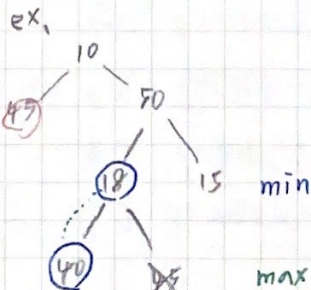 ex.
10
45
50
18
15
min
40
max